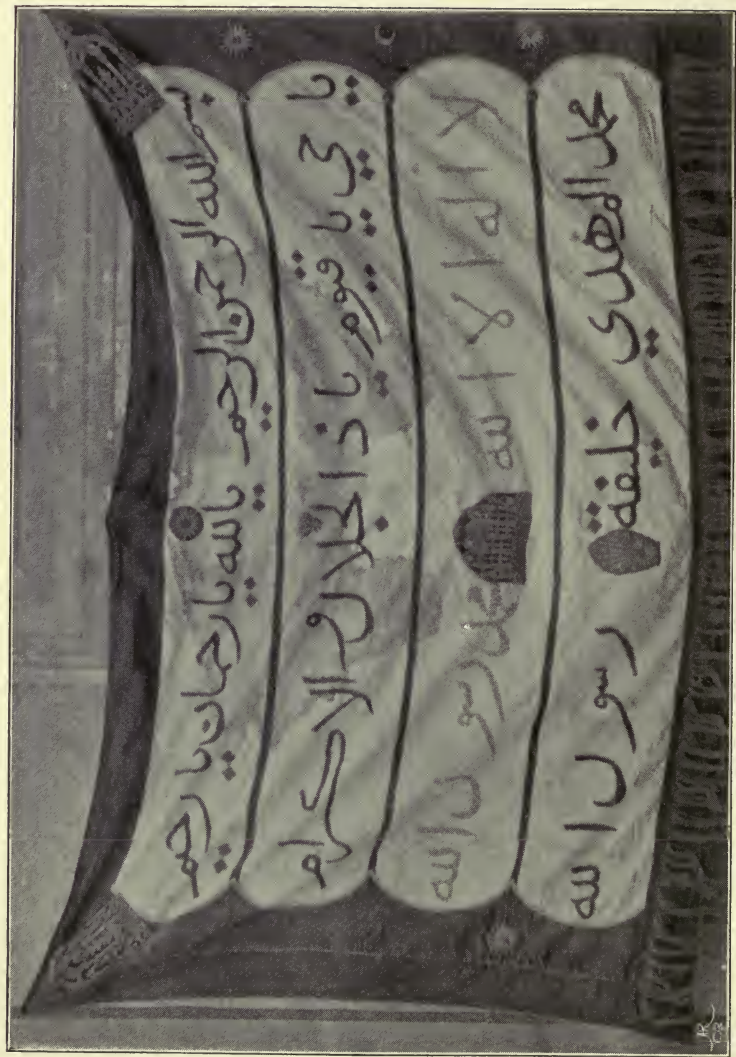 بسم الله الرحمن الرحيم يا الله يا رحمان يا رحيم
يا حي يا قيوم يا ذا الجلال و الاكرام
لا اله الا الله محمد رسول الله
محمد المهدي خليفة رسول الله